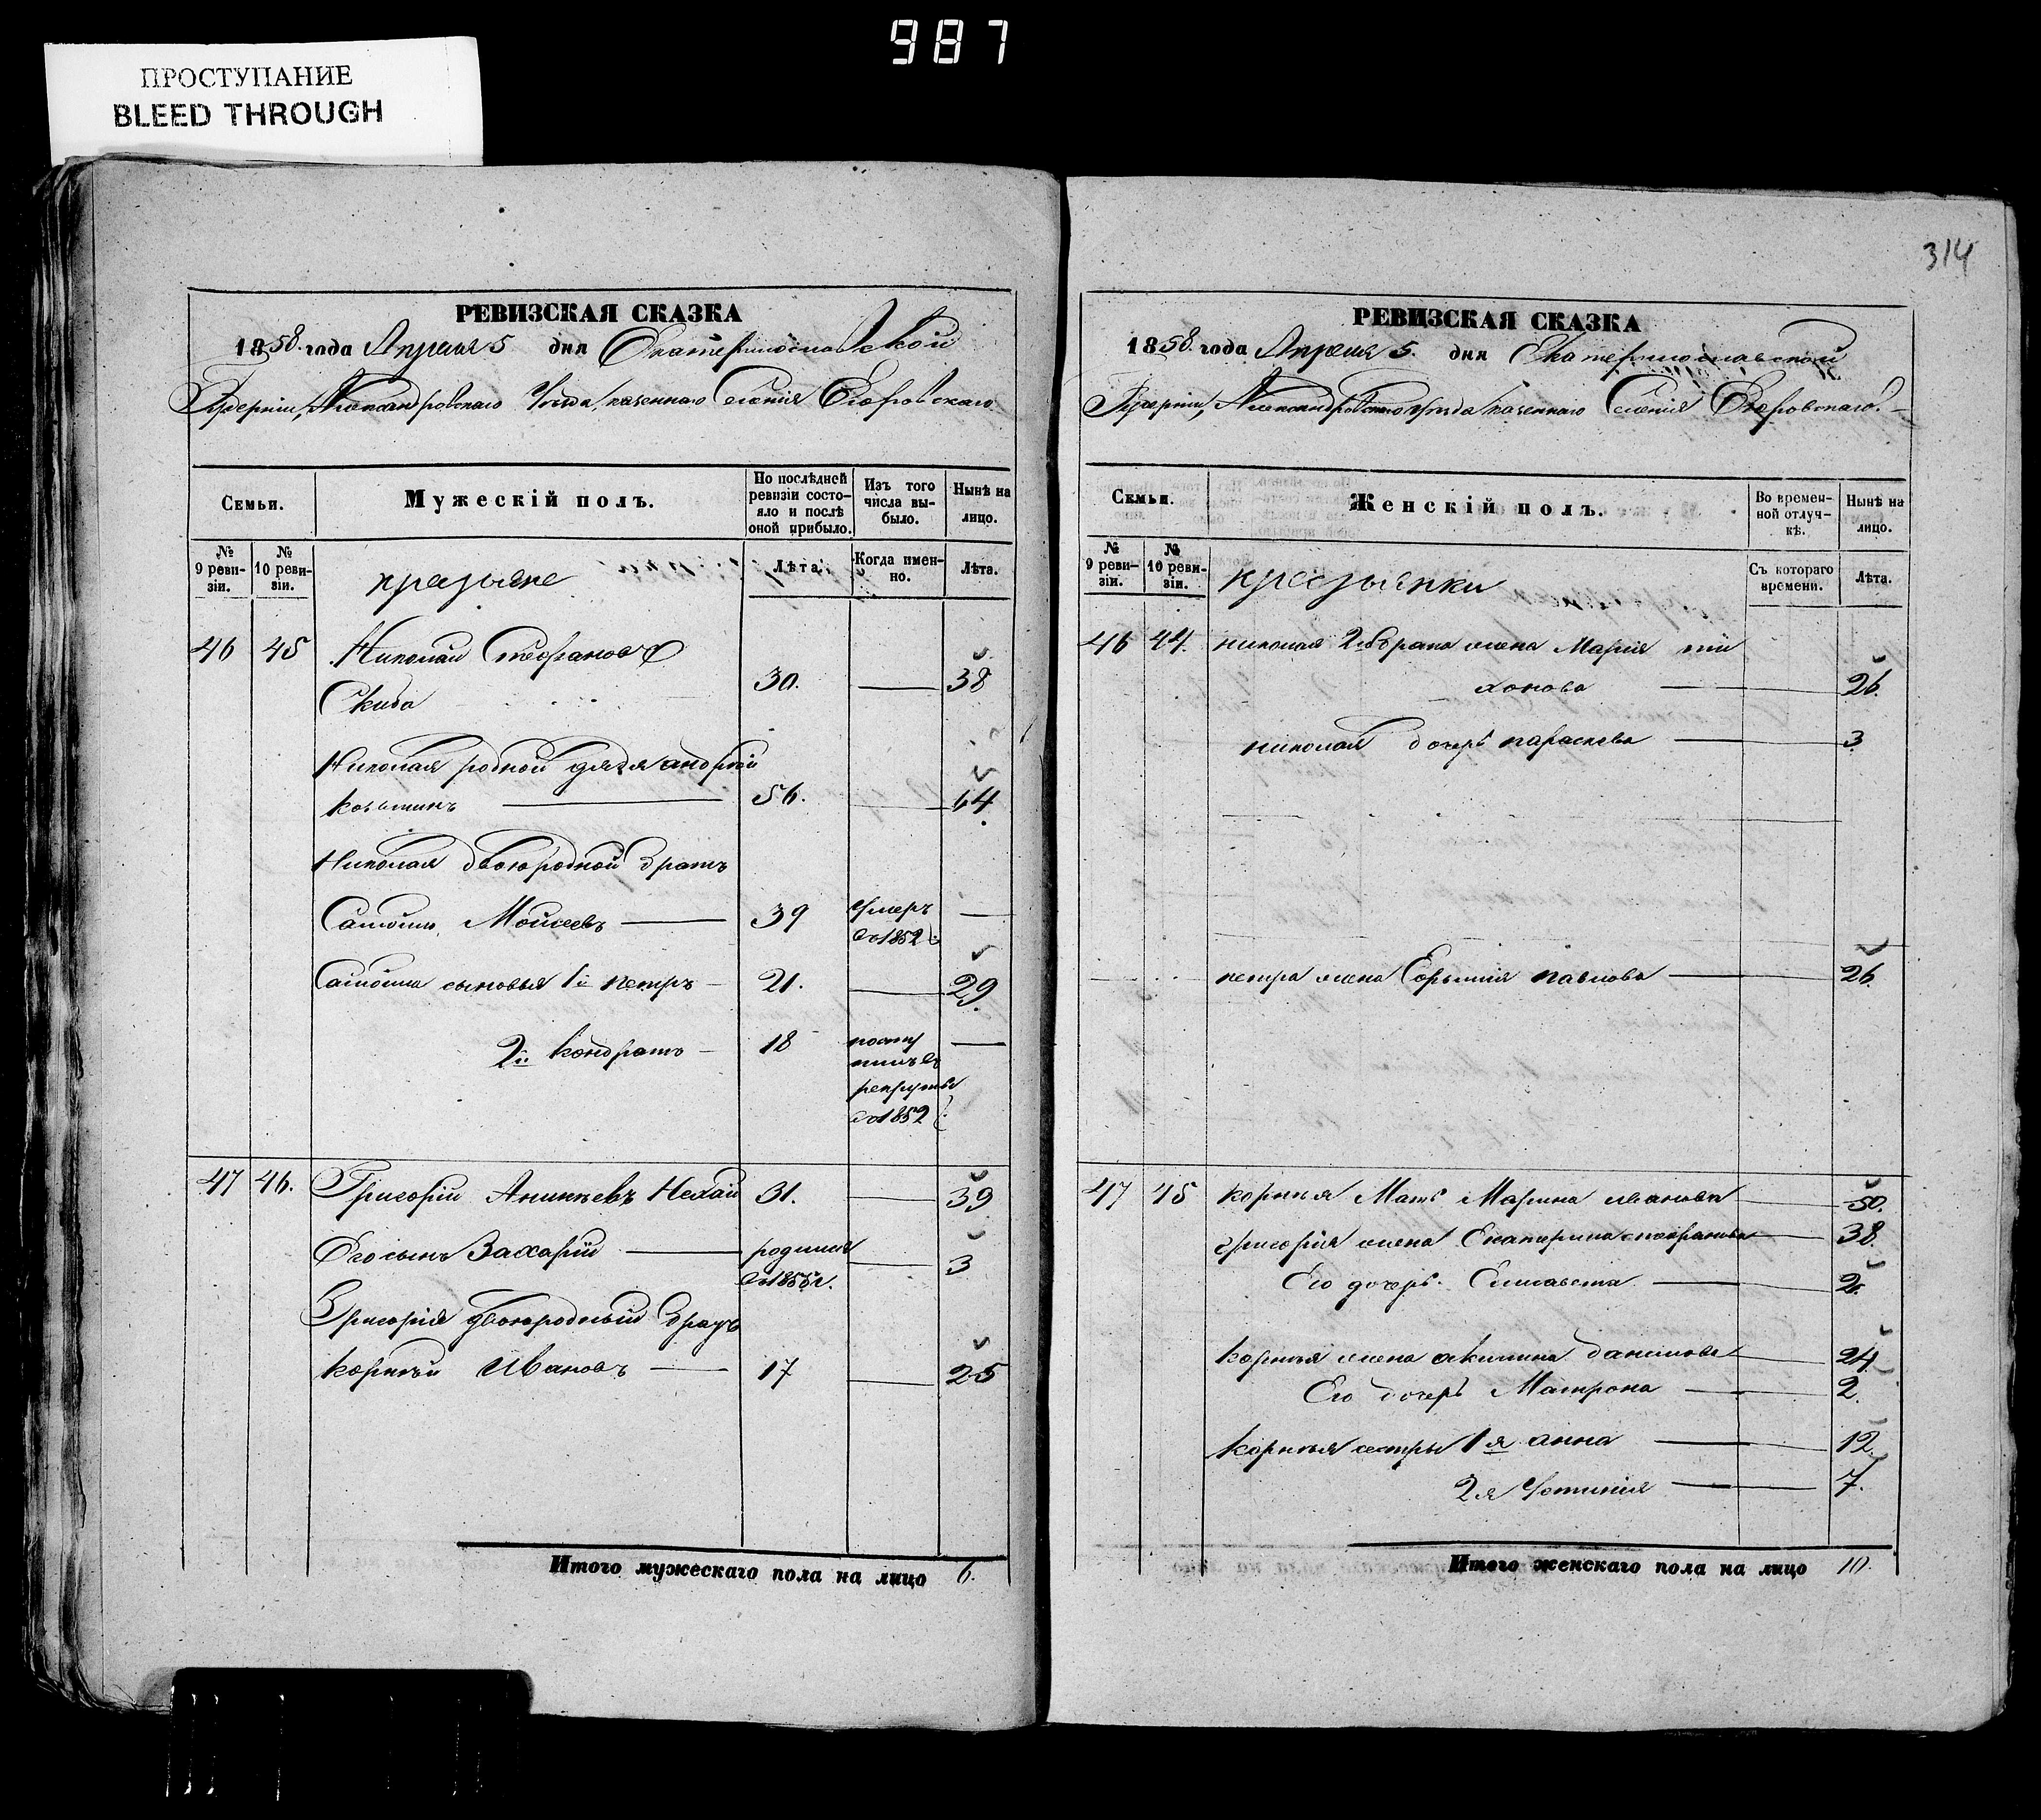 987
ПРОСТУПАНИЕ
BLEED THROUGH
РЕВИЗСКАЯ СКАЗКА
1858 года Апреля 5 дня Екатеринославской
Губернии, Александровскаго Уезда, казеннаго Селения Егоровскаго
Семьи.
Мужескій полъ.
По послѣдней ревизіи состояло и послѣ оной прибыло.
Изъ того числа выбыло.
Нынѣ на лицо.
№ 9 ревизіи.
№ 10 ревизіи.
крестьяне
Лѣта.
Когда именно.
Лѣта.
46 45 Николай Стефановъ
Скиба 30. 38
Николая родной дядя андрей
козьминъ 56. 64
Николая двоюродной братъ
Самойло Мойсеевъ 39 умеръ
въ 1852
Самойла сыновья 1й петръ 21. 29.
2й Кондратъ 18 посту
пилъ въ
рекруты
въ 1852
47 46. Григорий Аникеевъ Нехай 31. 39
Его сынъ Захарий родился 3
въ 1855 г.
Григория двоюродный братъ
Корней Ивановъ 17 25
Итого мужескаго пола на лицо 6.
314
РЕВИЗСКАЯ СКАЗКА
1858 года Апреля 5. дня Екатеринославской
Губернии, Александровскаго Уезда казеннаго Селения Егоровскаго.
Семьи.
Женскій полъ.
Во временной отлучкѣ.
Нынѣ на лицо.
№ 9 ревизіи.
№ 10 ревизіи.
крестьянки
Съ котораго времени.
Лѣта.
46 44. николая 2 брака жена Мария ти
хонова 26.
николая дочерь параскева 3
петра жена Ефимия павлова 26.
47 45 корнея Мать Марина иванова 50.
григория жена Екатерина стефанова 38.
Его дочерь Елисавета 2.
Корнея жена акилина данилова 24
Его дочерь Матрона 2
Корнея сестры 1я анна 12.
2я Устиния 7.
Итого женскаго пола на лицо 10.